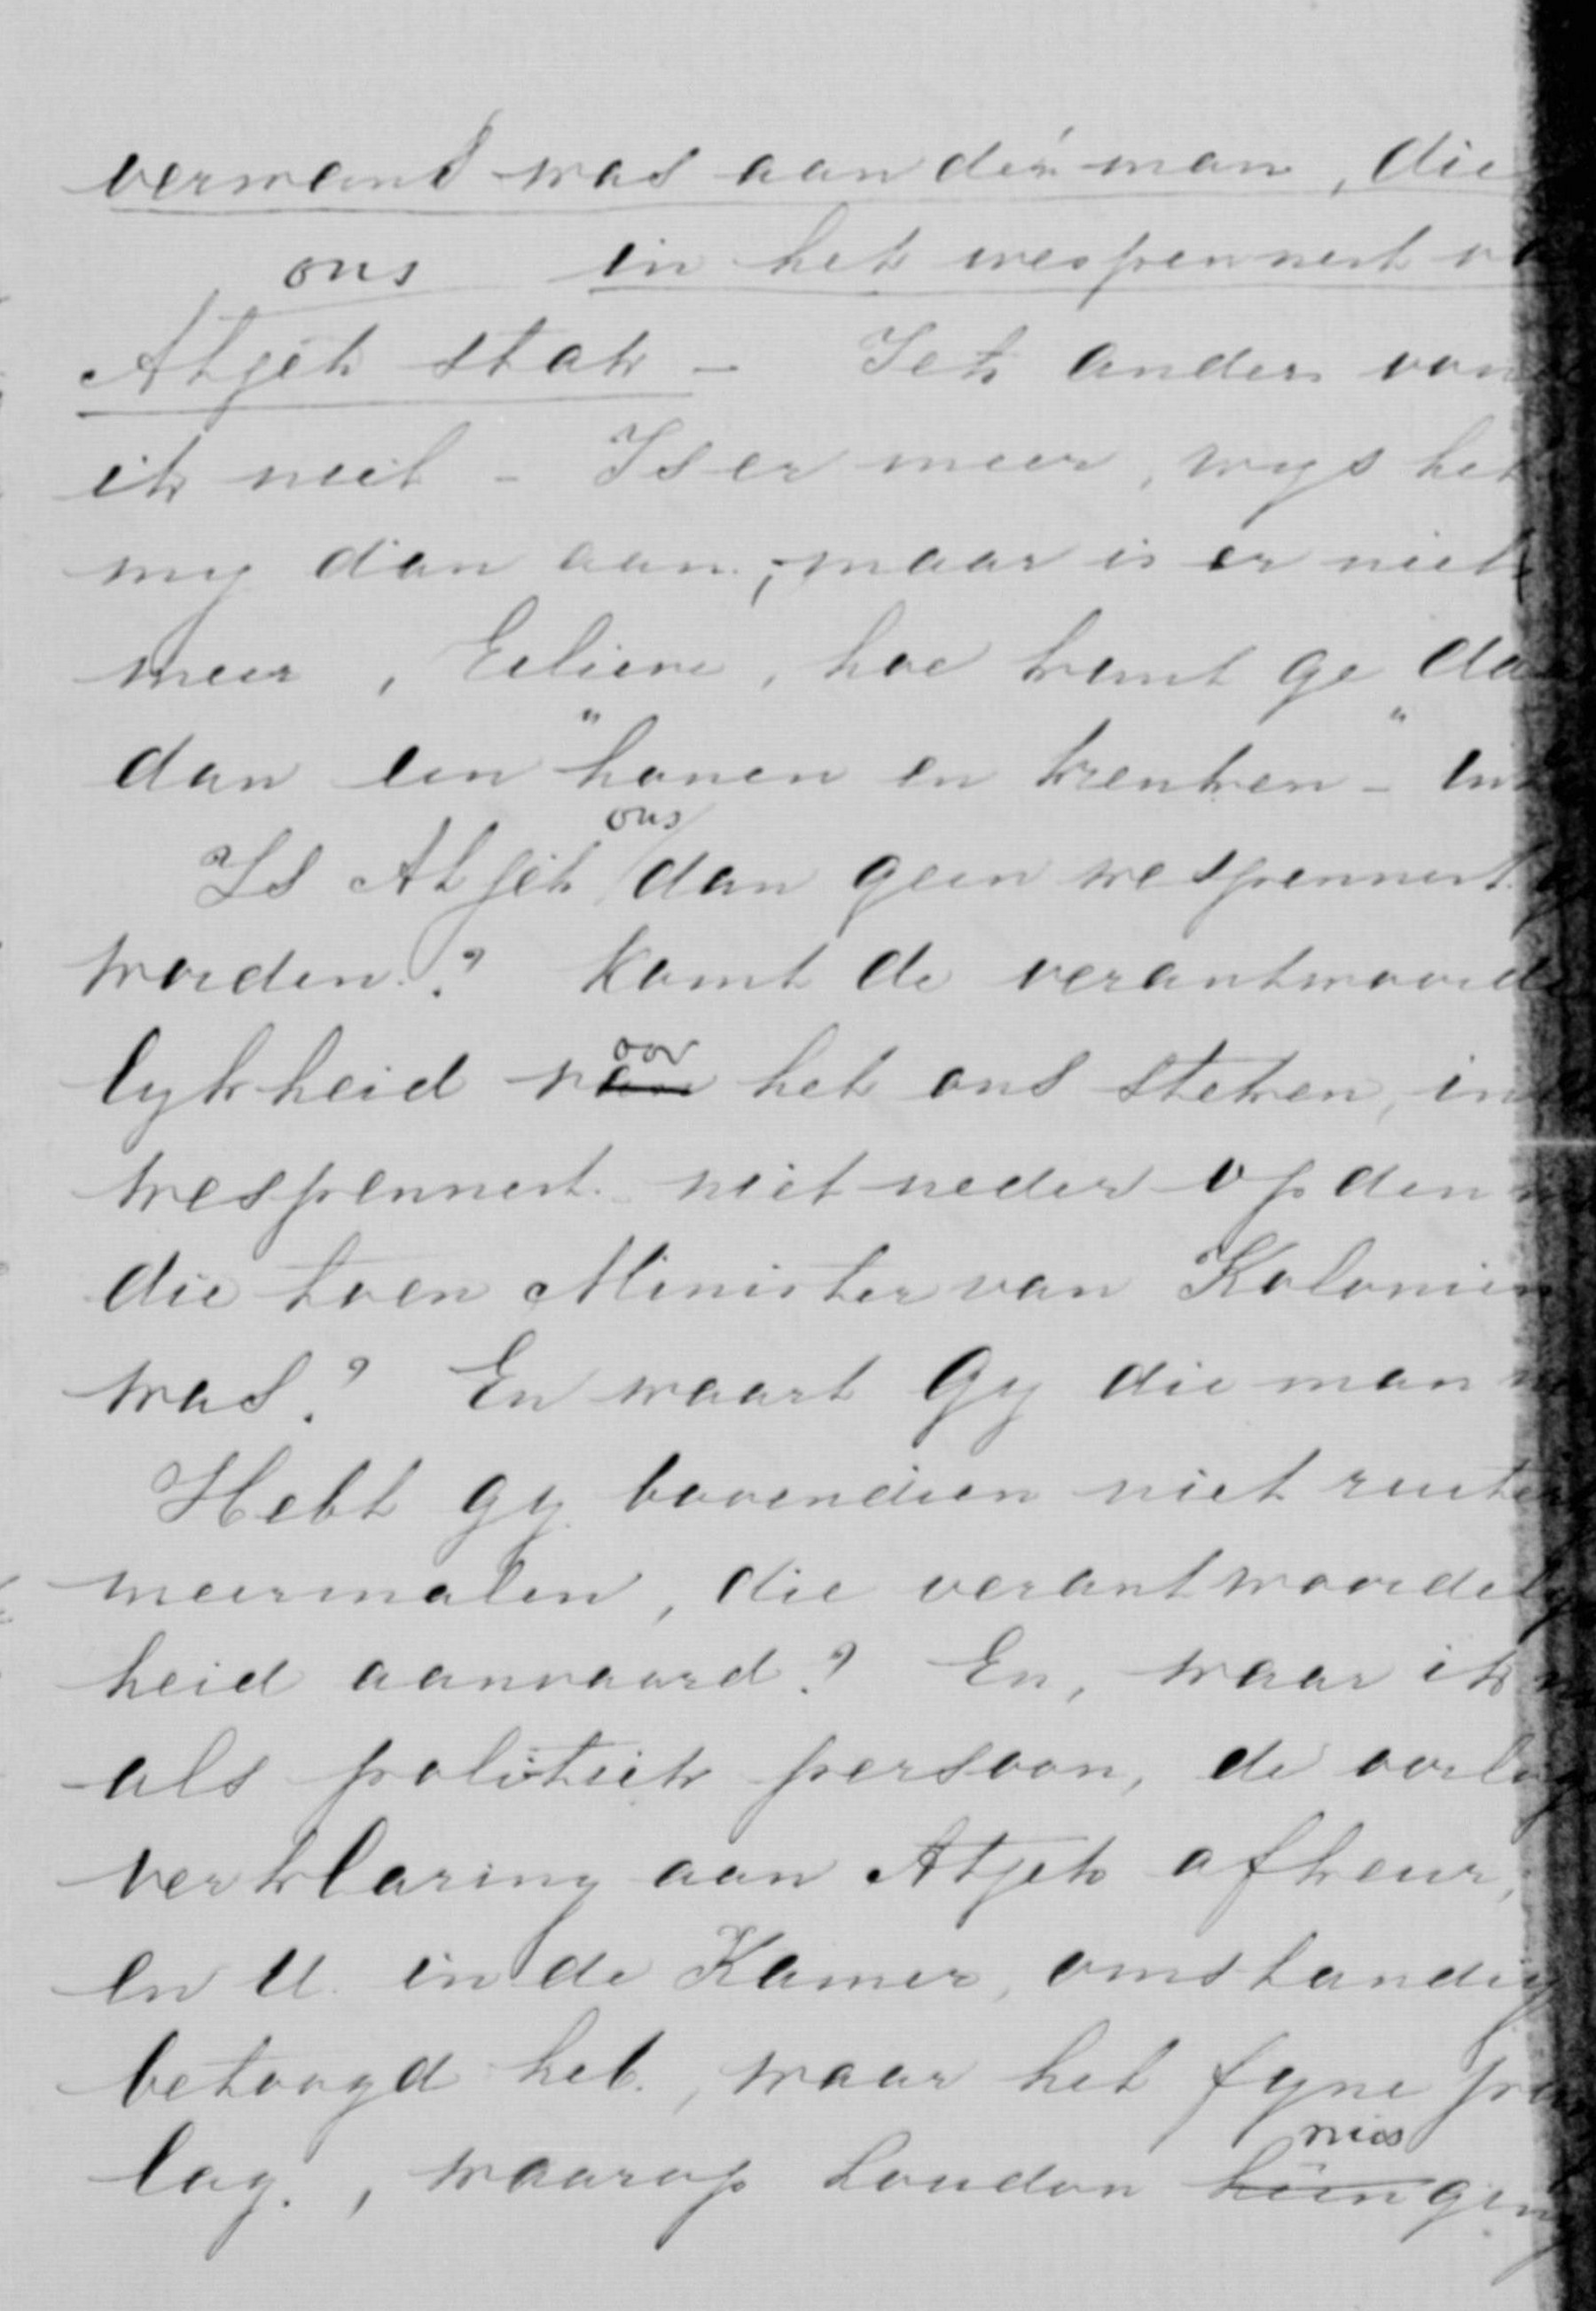 verwant was aan dien man, die
ons in het wespennest
Atjeh stak – Iets anders von
ik niet – Is er meer, wys het
my dan aan; maar is er niets
meer, Eelieve, hoe kunt ge
dan een "honen en krenken" –
Is Atjeh ons dan geen wespennest
worden? Komt de verantwoorde
lykheid voor het ons steken, in
wespennest niet neder op den
die toen Minister van Kolonien
was? En waart Gy die man
Hebt gy bovendien niet
meermalen, die verantwoordely
heid aanvaard? En, waar ik
als politiek persoon, de oorlog
verklaring aan Atjeh afkeur,
en U in de Kamer, omstandig
betoogd heb, waar het fyne
lag, waarop Loudon mis